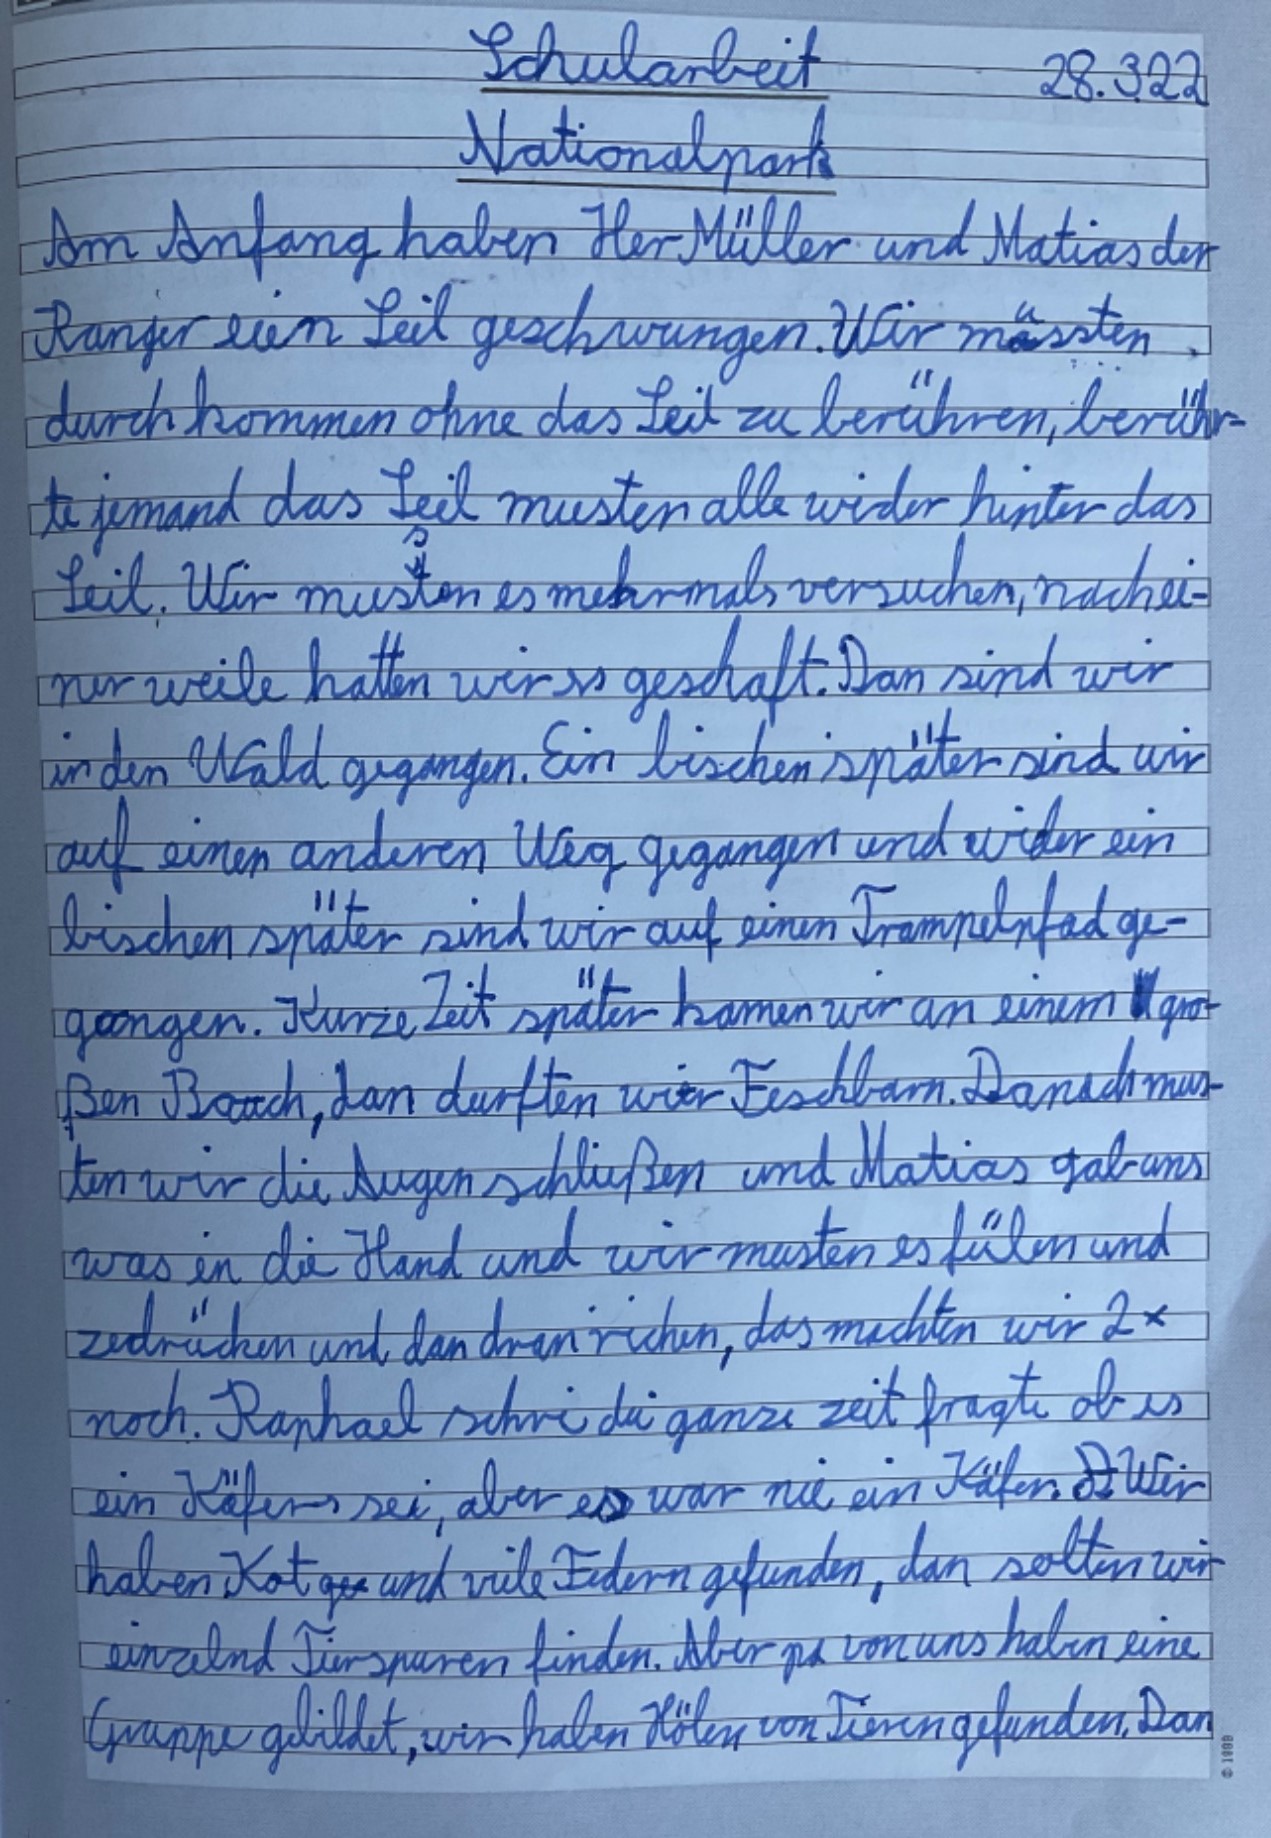 Schularbeit 28.3.22
Nationalpark
Am Anfang haben Her Müller und Matias der
Ranger eien Seil geschwungen. Wir müssten
durch kommen ohne das Seil zu berühren, berühr-
te jemand das Seil musten alle wider hinter das
Seil. Wir mussten es mehrmals versuchen, nach ei-
ner weile hatten wir es geschaft. Dan sind wir
in den Wald gegangen. Ein bischen später sind wir
auf einen anderen Weg gegangen und wider ein
bischen später sind wir auf einen Trampelpfad ge-
gangen. Kurze Zeit später kamen wir an einem gro-
ßen Bach, dan durften wir Feschbarn. Danach mus-
ten wir die Augen schließen und Matias gab uns
was in die Hand und wir musten es fülen und
zedrücken und dan dran richen, das machten wir 2x
noch. Raphael schri die ganze zeit fragte ob es
ein Käfer sei, aber es war nie ein Käfer. Wir
haben Kot und vile Federn gefunden, dan solten wir
einzelnd Tierspuren finden. Aber pa von uns haben eine
Gruppe gebildet, wir haben Hölen von Tieren gefunden. Dan
© 1999